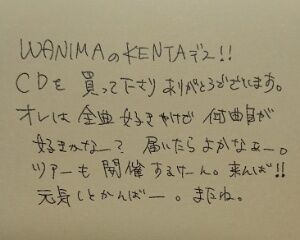 WANIMAのKENTAデス!!
CDを買って下さりありがとうございます。
オレは全曲好きやけど何曲目が
好きかなー？届いたらよかなぁー。
ツアーも開催するけーん。来んば!!
元気しとかんばー。またね。